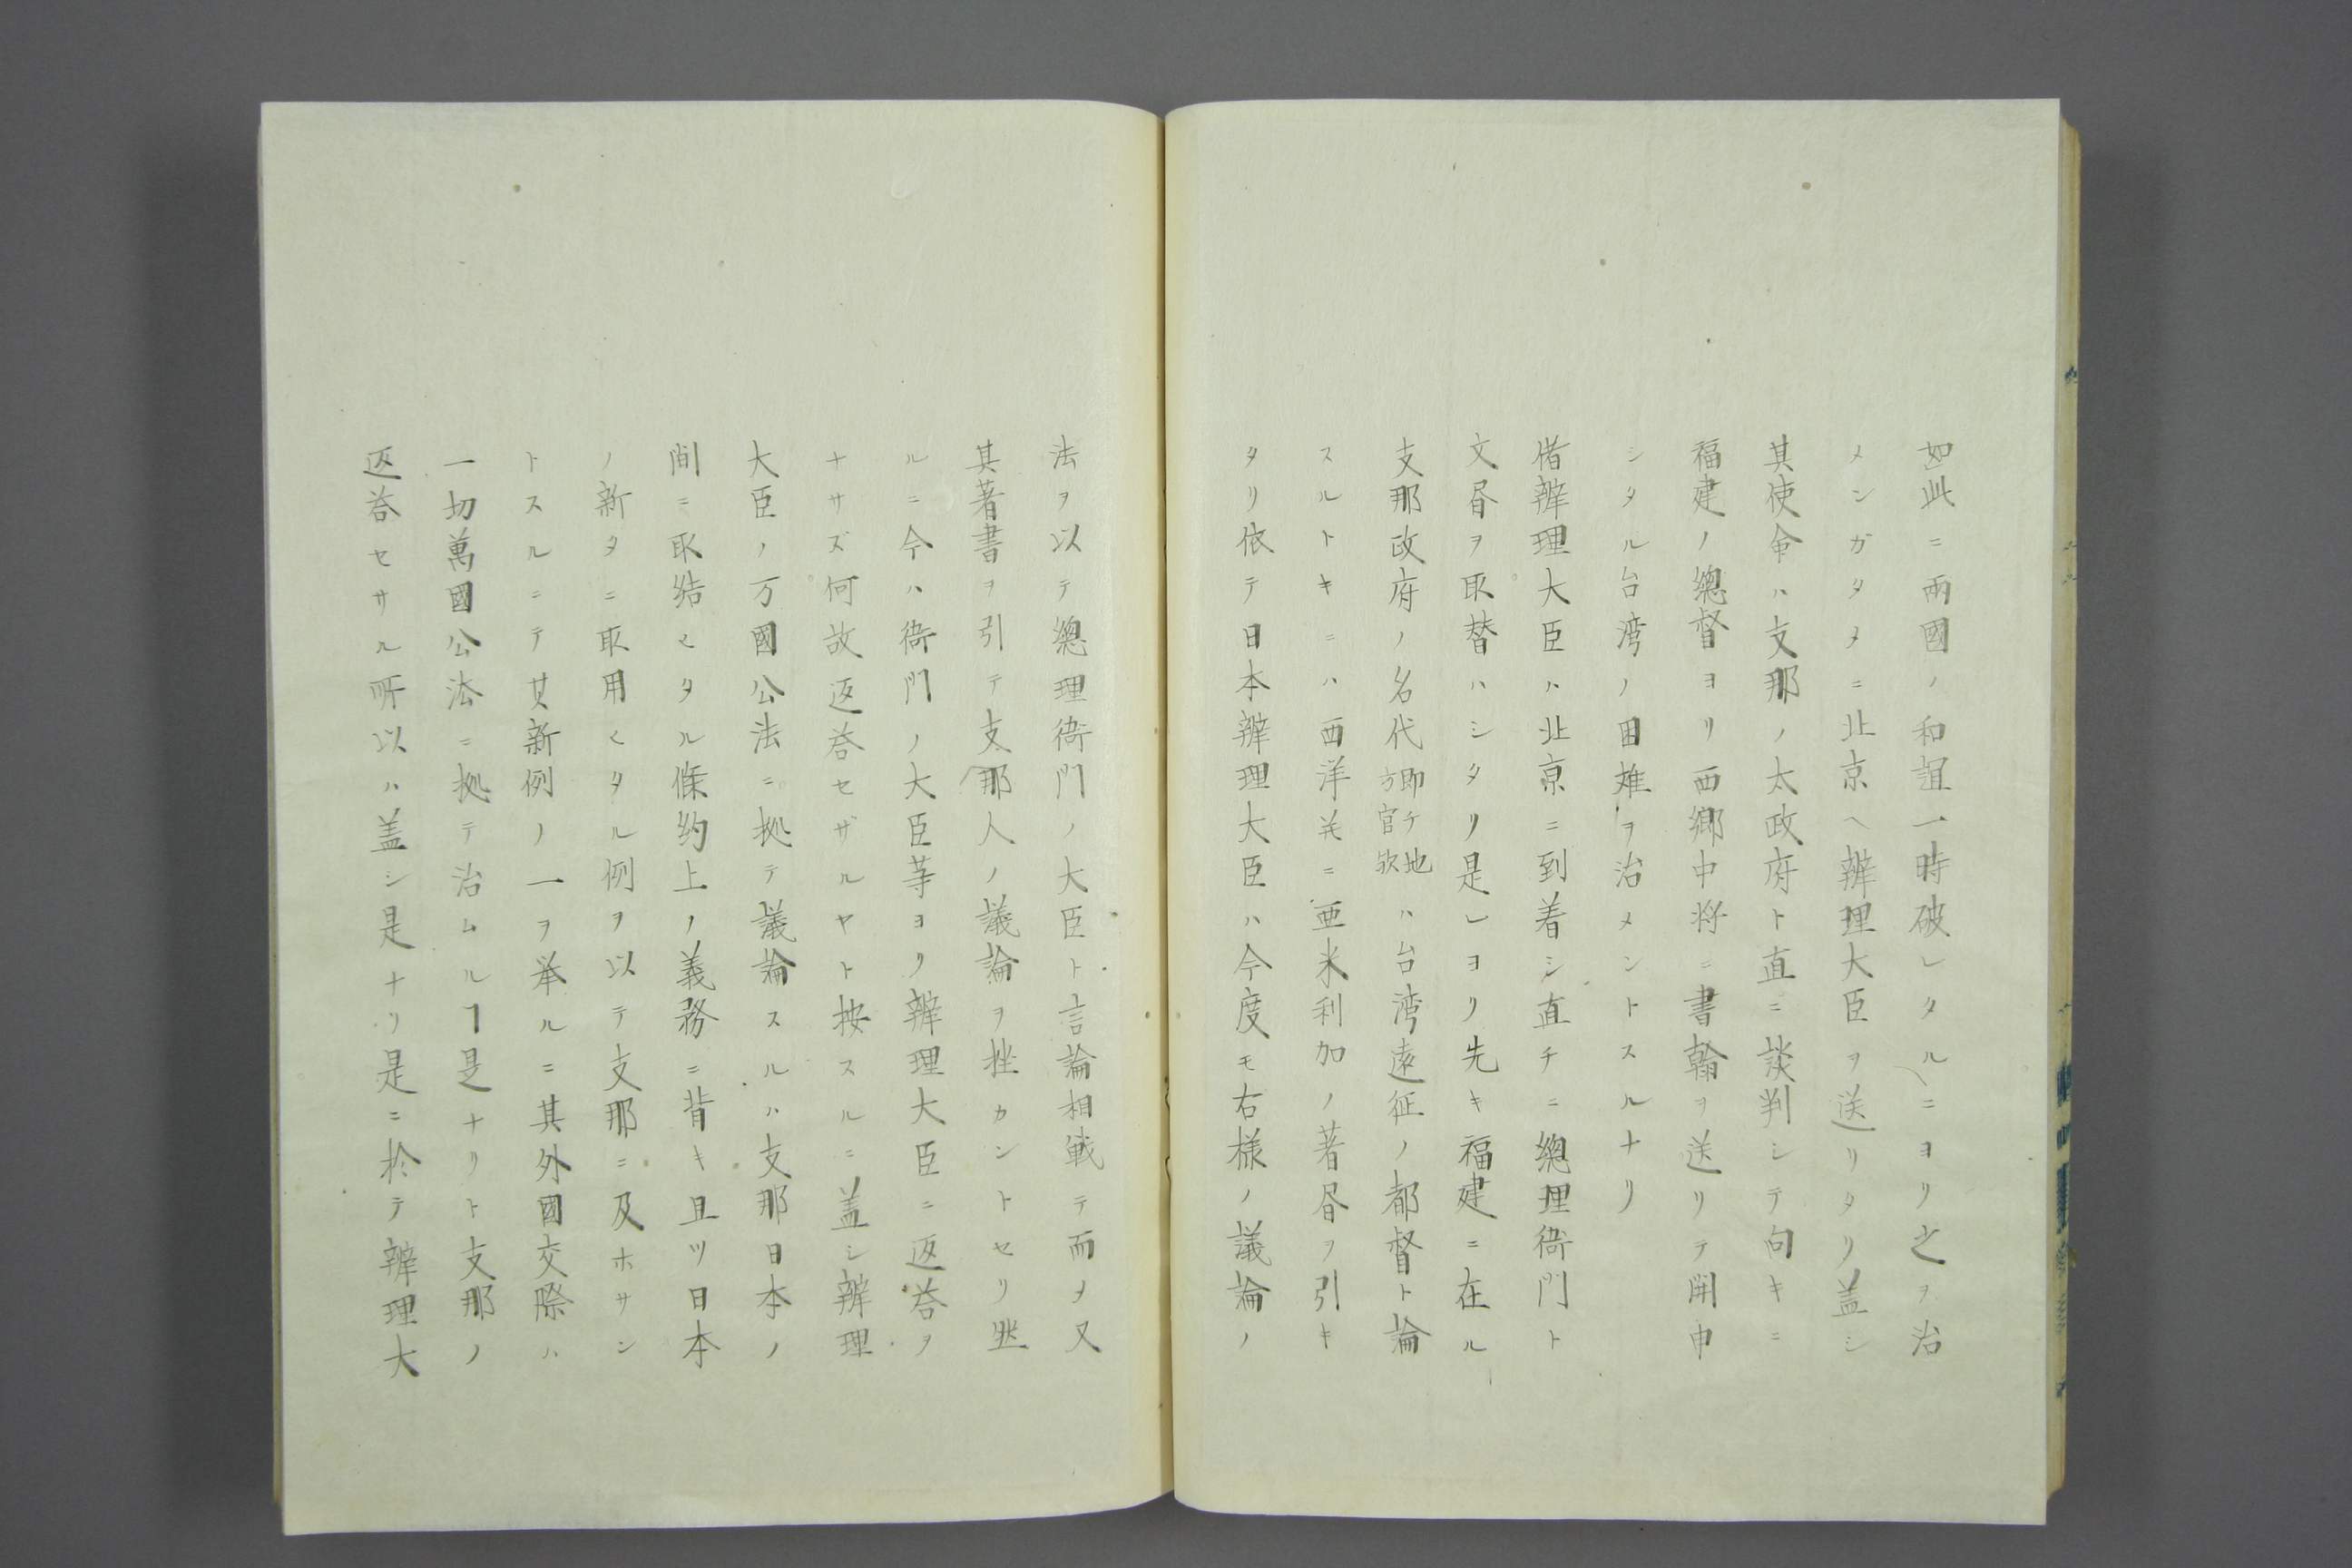 如此ニ兩國ノ和誼一時破レタルニヨリ之ヲ治
メンガタメニ北京ヘ辨理大臣ヲ送リタリ盖シ
其使命ハ支那ノ太政府ト直ニ談判シテ向キニ
福建ノ總督ヨリ西郷中将ニ書翰ヲ送リテ開申
シタル台湾ノ困难ヲ治メントスルナリ
偖辨理大臣ハ北京ニ到着シ直チニ總理衙門ト
文昏ヲ取替ハシタリ是レヨリ先キ福建ニ在ル
支那政府ノ名代即チ地方官欤ハ台湾遠征ノ都督ト論
スルトキニハ西洋并ニ亜米利加ノ著昏ヲ引キ
タリ依テ日本辨理大臣ハ今度モ右様ノ議論ノ
法ヲ以テ總理衙門ノ大臣ト言論相戦テ而メ又
其著書ヲ引テ支那人ノ議論ヲ挫カントセリ然
ルニ今ハ衙門ノ大臣等ヨリ辨理大臣ニ返答ヲ
ナサズ何故返答セザルヤト按スルニ盖シ辨理
大臣ノ万國公法ニ拠テ議論スルハ支那日本ノ
間ニ取結ヒタル條約上ノ義務ニ背キ且ツ日本
ノ新タニ取用ヒタル例ヲ以テ支那ニ及ホサン
トスルニテ其新例ノ一ヲ举ルニ其外國交際ハ
一切萬國公法ニ拠テ治ムルヿ是ナリト支那ノ
返答セサル所以ハ盖シ是ナリ是ニ於テ辨理大